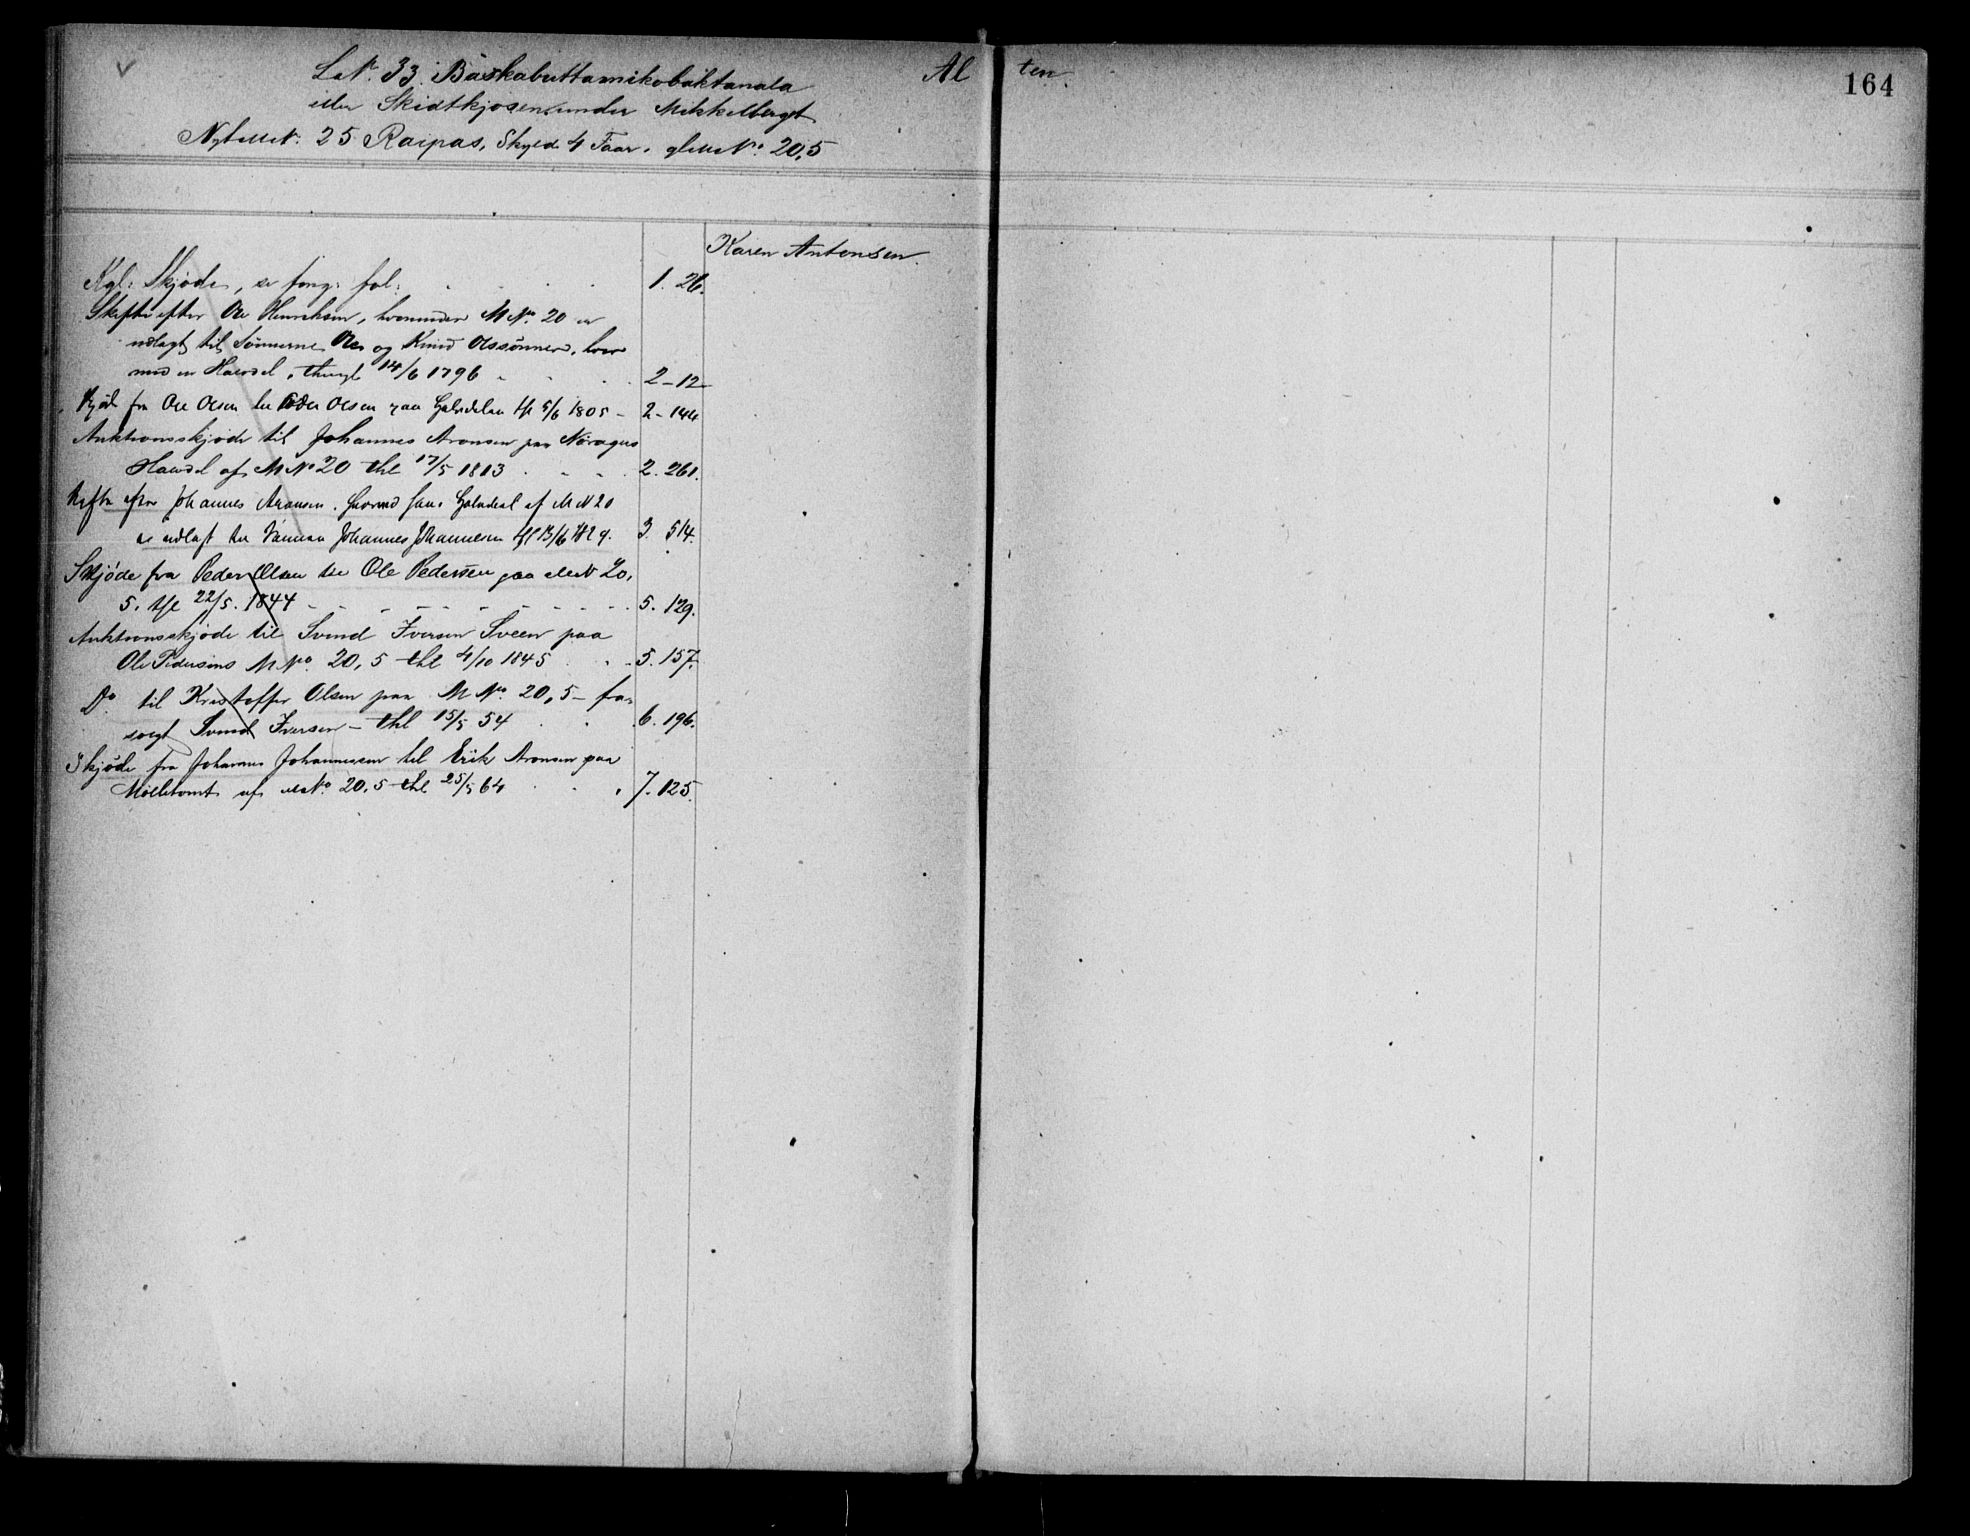 L.N. 33. Báskabuttamikobaktanala
Al ten
164
eller Skidtkjosen under Mikkelberget
Ny M.N. 25 Raipas, Skyld 4 Faar. gl M.No. 20,5
Karen Antonsen
Kgl: Skjøde, se forrig: fol: 1. 26.
Skifte efter Ole Henriksen, hvorunder M No. 20 er
udlagt til Sønnerne Ole og Knud Olssønner, hver
med en Halvdel, thingl 14/6 1796 2-12
Skjøde fra Ole Olsen til Peder Olsen paa Halvdelen thl 5/6 1805 - 2-144
Auktionsskjøde til Johannes Aronsen paa
Halvdel af M No 20 thl 17/5 1813 2. 261.
Skifte efter Johannes Aronsen. hvorved hans Halvdeel af M N 20
er udlagt til Sønnen Johannes Johannesen thl 13/6 1829. 3. 514.
Skjøde fra Peder Olsen til Ole Pedersen paa M N 20,
5, thl 22/5. 1844 5. 129.
Auktionsskjøde til Svend Iversen Sveen paa
Ole Pedersens M No. 20,5 thl 4/10 1845 5. 157.
Do til Kristoffer Olsen paa M No. 20,5 - fra
solgt Svend Iversen - thl 15/5 54 6. 196.
Skjøde fra Johannes Johannessen til Erik Aronsen paa
Mølletomt af M No. 20,5 thl 25/5 64 7. 125.